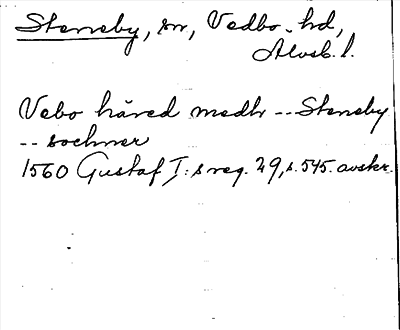 Steneby, sn, Vedbo hd,
Älvsb. l.
Vebo häred medh -- Steneby
-- sochner
1560 Gustaf I:s reg. 29, s. 545. avskr.